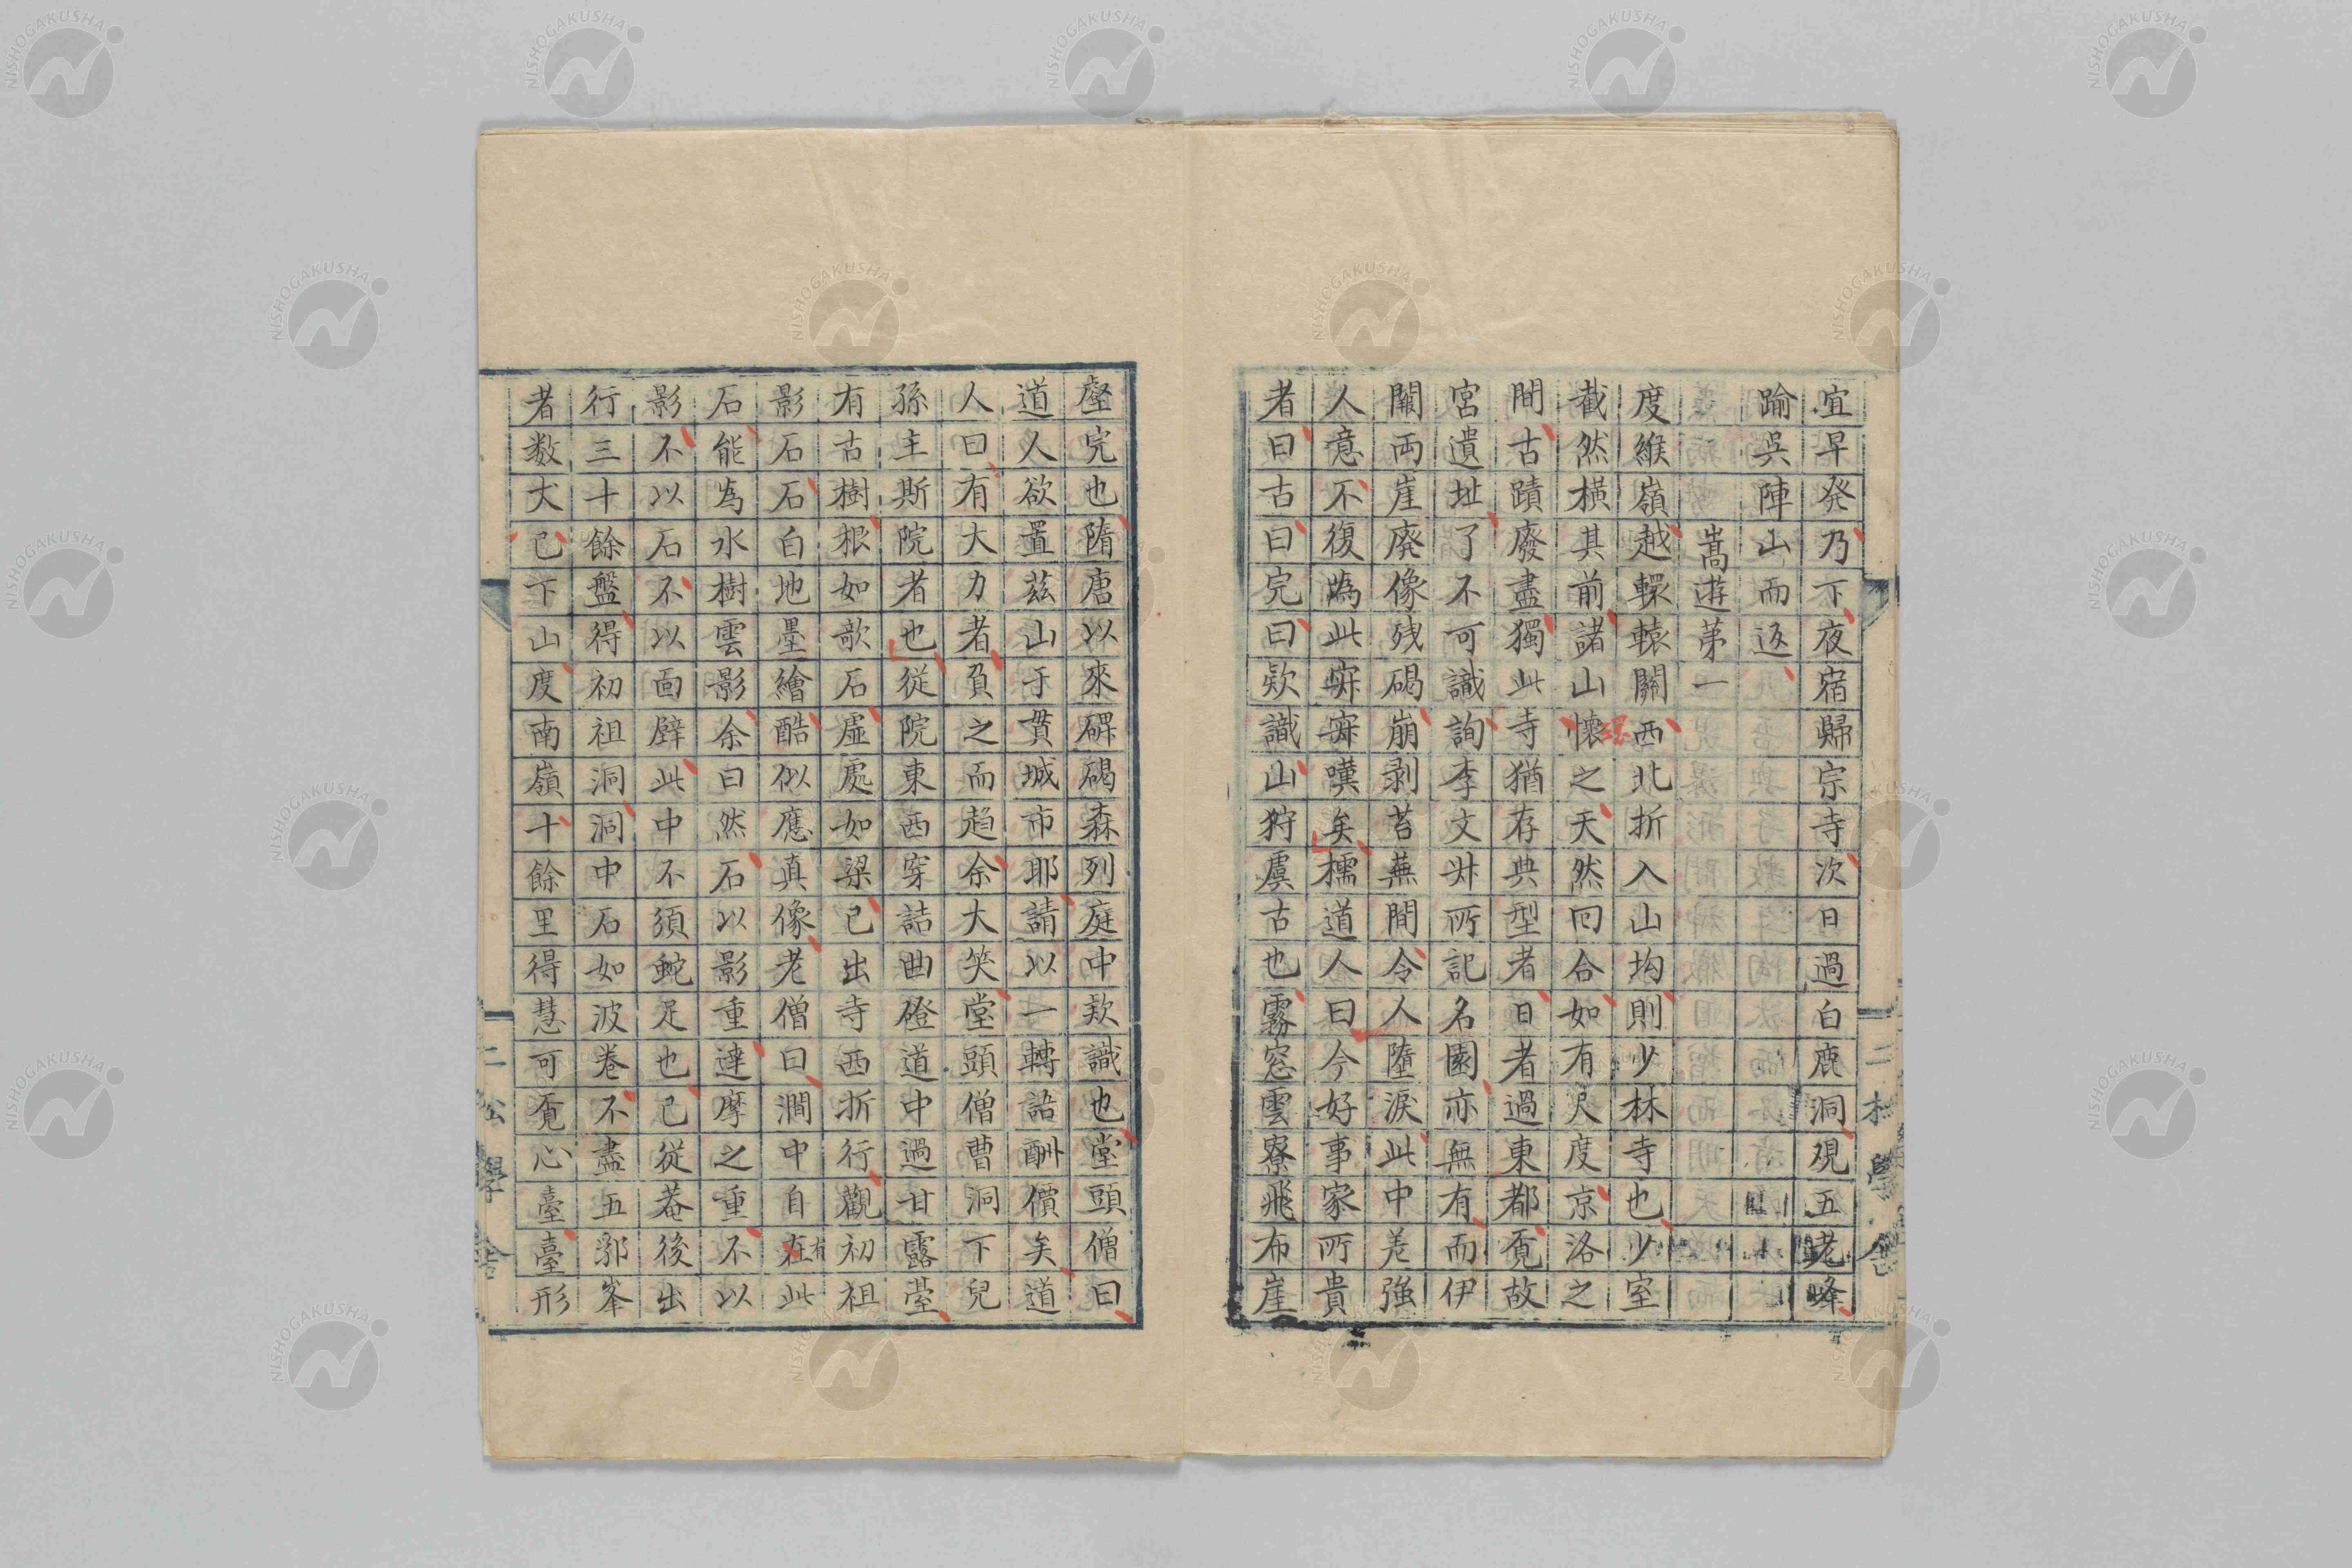 宜早発乃下夜宿歸宗寺次日過白鹿洞覌五老峰
踰吳陣山而返
嵩遊苐一
度維嶺越轘轅關西北折入山坳則少林寺也少室
截然橫其前諸山懷之天然囘合如有尺度京洛之
間古蹟廢盡獨此寺猶存典型者日者過東都覔故
宮遺址了不可識詢李文𠦑所記名園亦無有而伊
闕両崖廃像残碣崩剥苔蕪間令人墮淚此中差強
人意不復為此寂寂嘆矣檽道人曰今好事家所貴
者曰古曰完曰欵識山狩虞古也霧窓雲寮飛布崖
壑完也隋唐以來碑碣森列庭中欵識也堂頭僧曰
道人欲置茲山于貫城市耶請以一轉語酬價矣道
人曰有大力者負之而趋余大笑堂頭僧曹洞下兒
孫主斯院者也從院東西穿詰曲磴道中過甘露臺
有古樹根如欹石虛處如梁已出寺西折行觀初祖
影石石白地墨繪酷似應真像老僧曰澗中自在此
有
石能為水樹雲影余曰然石以影重達摩之重不以
影不以石不以面壁此中不須蛇足也已從菴後出
行三十餘盤得初祖洞洞中石如波卷不盡五郭峯
者数丈已下山度南嶺十餘里得慧可覔心臺臺形
二松學舍
二松學舍
NISHOGAKUSHA